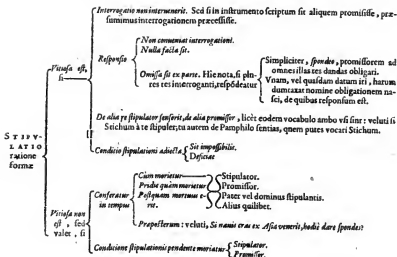 Interrogatio non interuenerit. Sed si in instrumento scriptum sit aliquem promisisse, præ-
sumimus interrogationem præcessisse.
Non conueniat interrogationi.
Nulla facta sit.
Responsio
Omissa sit ex parte. Hic nota, si plu-
res res interroganti, respōdeatur
Simpliciter, spondeo, promissorem ad
omnes illas res dandas obligari.
Vnam, vel quasdam datum iri, harum
dumtaxat nomine obligationem na-
sci, de quibus responsum est.
Vitiosa est,
si
De alia re stipulator senserit, de alia promissor, licèt eodem vocabulo ambo vsi sint: veluti si
Stichum à te stipuler, tu autem de Pamphilo sentias, quem putes vocari Stichum.
Conditio stipulationi adiecta
Sit impossibilis.
Deficiat
STIPV-
LATIO
ratione
formæ
Conferatur
in tempus
Cum morietur
Pridie quàm morietur
Postquam mortuus e-
rit.
Stipulator.
Promissor.
Pater vel dominus stipulantis.
Alius quilibet.
Vitiosa non
est, sed
valet, si
Præposterum: veluti, Si nauis cras ex Asia venerit, hodiè dare spondes?
Conditione stipulationis pendente moriatur
Stipulator.
Promissor.